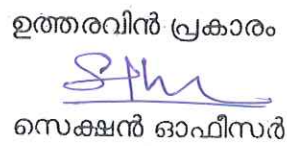 ഉത്തരവിൻ പ്രകാരം
സെക്ഷൻ ഓഫീസർ